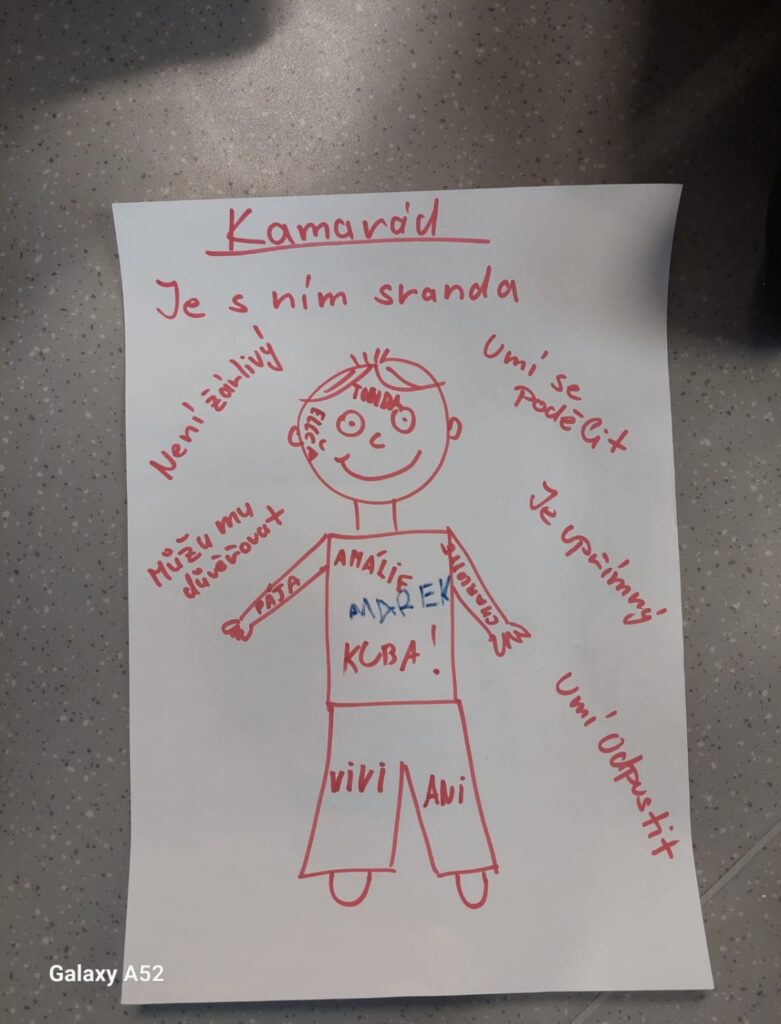 Kamarád
Je s ním sranda
Není žárlivý
Umí se
podělit
Můžu mu
důvěřovat
Je upřímný
Umí odpustit
TONDA
AMÁLIE
MAREK
KUBA!
PÁJA
CHARLOTTE
VIVI
ANI
Galaxy A52